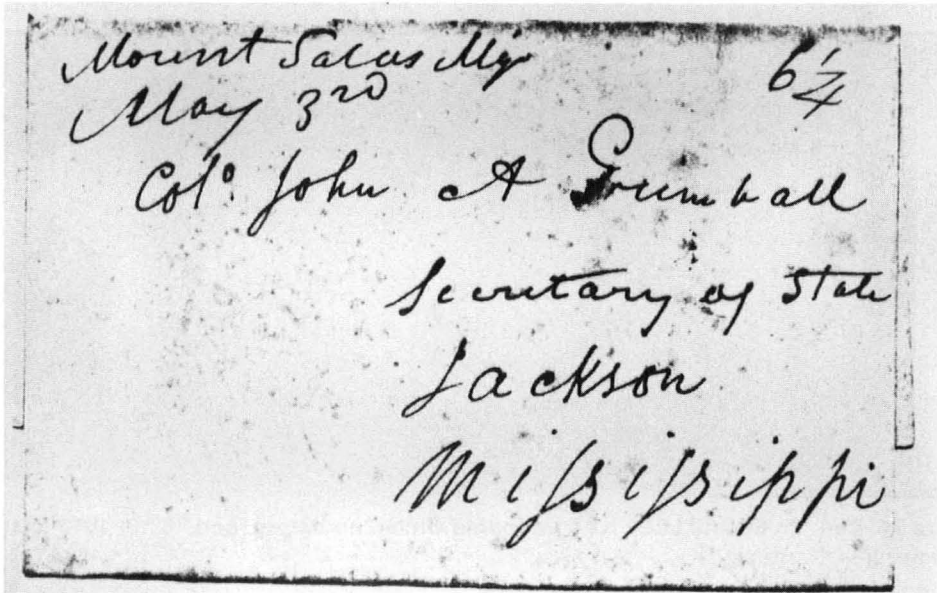 Mount Salus Mi
May 3rd
6 1/4
Colo. John A Grimball
Secretary of State
Jackson
Mississippi